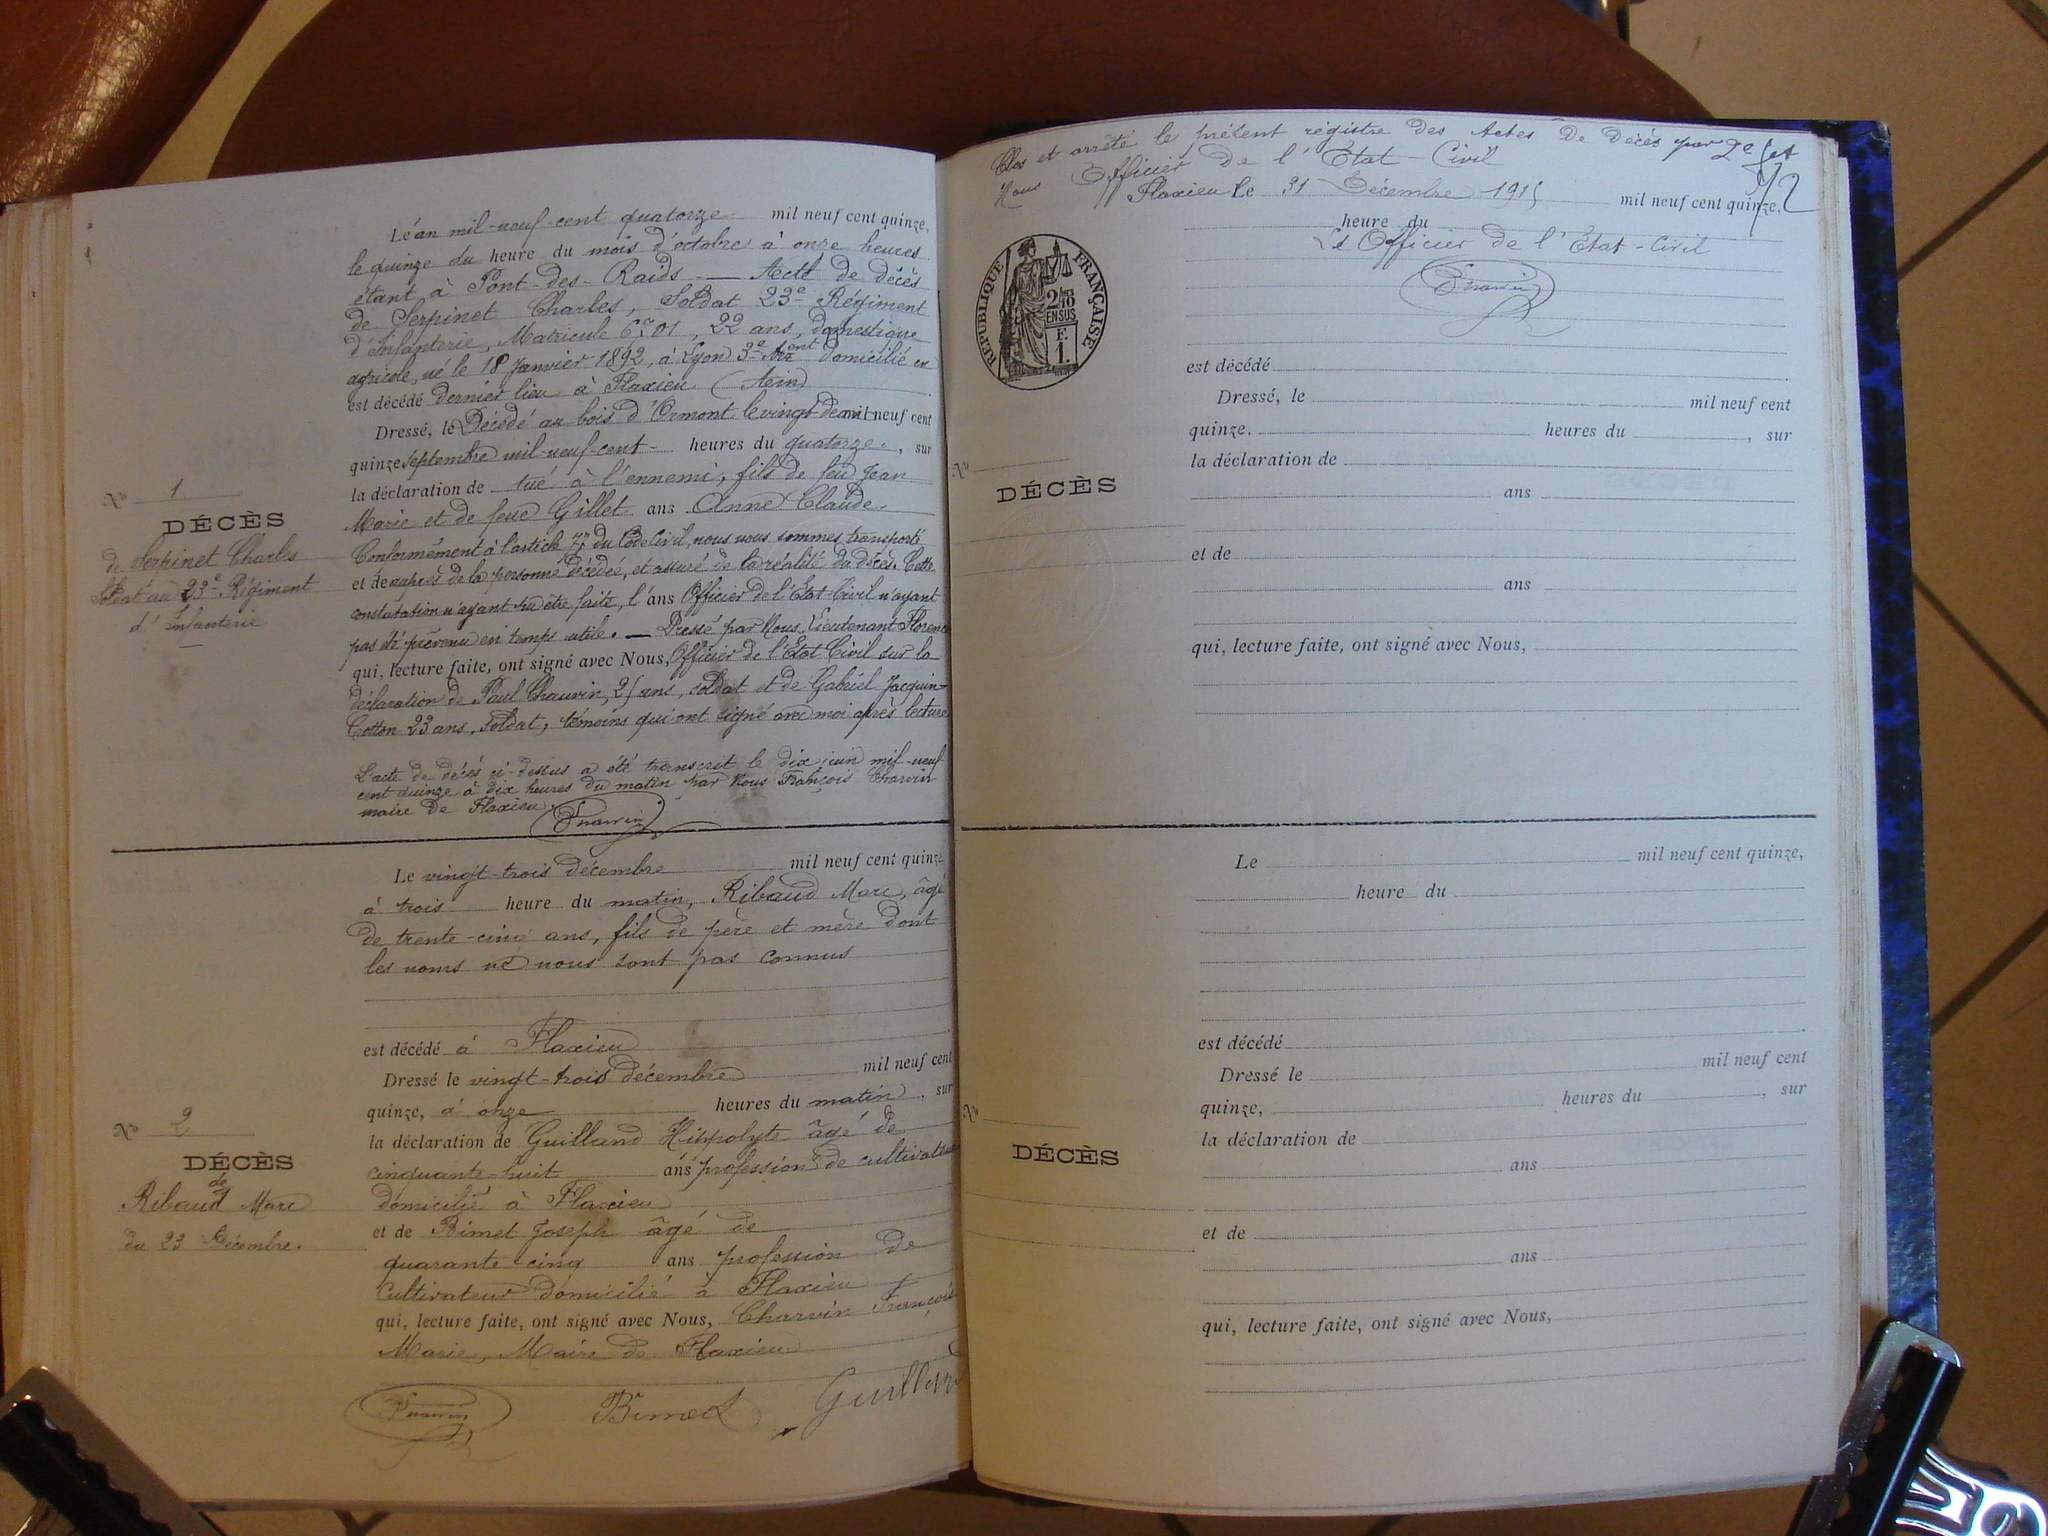 Le an mil-neuf-cent quatorze mil neuf cent quinze,
le quinze du heure du mois d'octobre à onze heures
étant à Pont-des-Raids — Acte de décès
de Serpinet Charles, Soldat 23e Régiment
d'Infanterie, Matricule 6701, 22 ans, domestique
agricole, né le 18 Janvier 1892, à Lyon 3e Arront domicilié en
est décédé dernier lieu à Flaxieu (Ain)
Dressé, le Décédé au bois d'Ormont le vingt deux mil neuf cent
quinze septembre mil-neuf-cent- heures du quatorze, sur
la déclaration de tué à l'ennemi, fils de feu Jean
Marie et de feue Gillet ans Anne Claude.
Conformément à l'article 77 du Code Civil, nous nous sommes transporté
et de auprès de la personne décédée, et assuré de la réalité du décès. Cette
constatation n'ayant pu être faite, l' ans Officier de l'Etat-Civil n'ayant
pas été prévenu en temps utile. — Dressé par Nous, Lieutenant Florence
qui, lecture faite, ont signé avec Nous, Officier de l'Etat Civil sur la
déclaration de Paul Chauvin, 25 ans, soldat et de Gabriel Jacquin-
Cotton 23 ans, soldat, témoins qui ont signé avec moi après lecture
L'acte de décès ci-dessus a été transcrit le dix juin mil-neuf-
cent quinze à dix heures du matin par Nous François Charvin
maire de Flaxieu.
Charvin
No 1
DÉCÈS
de Serpinet Charles
Soldat au 23e Régiment
d'Infanterie
Le vingt-trois décembre mil neuf cent quinze
à trois heure du matin, Ribaud Marc, âgé
de trente-cinq ans, fils de père et mère dont
les noms ne nous sont pas connus
est décédé à Flaxieu
Dressé le vingt-trois décembre mil neuf cent
quinze, à onze heures du matin, sur
la déclaration de Guilland Hippolyte âgé de
cinquante-huit ans profession de cultivateur
domicilié à Flaxieu
et de Bimet Joseph âgé de
quarante cinq ans profession de
Cultivateur domicilié à Flaxieu
qui, lecture faite, ont signé avec Nous, Charvin François
Marie, Maire de Flaxieu
Charvin Bimet Guilland
No 2
DÉCÈS
de
Ribaud Marc
du 23 Décembre.
Clos et arrêté le présent régistre des Actes de décès par
Nous Officier de l'Etat-Civil
2e
Flaxieu Le 31 Décembre 1915 mil neuf cent quinze,
heure du
L'Officier de l'Etat-Civil
Charvin
RÉPUBLIQUE FRANÇAISE
2/10 EN SUS
F. 1.
est décédé
Dressé, le mil neuf cent
quinze, heures du , sur
la déclaration de
ans
et de
ans
qui, lecture faite, ont signé avec Nous,
No
DÉCÈS
Le mil neuf cent quinze,
heure du
est décédé
Dressé le mil neuf cent
quinze, heures du , sur
la déclaration de
ans
et de
ans
qui, lecture faite, ont signé avec Nous,
No
DÉCÈS